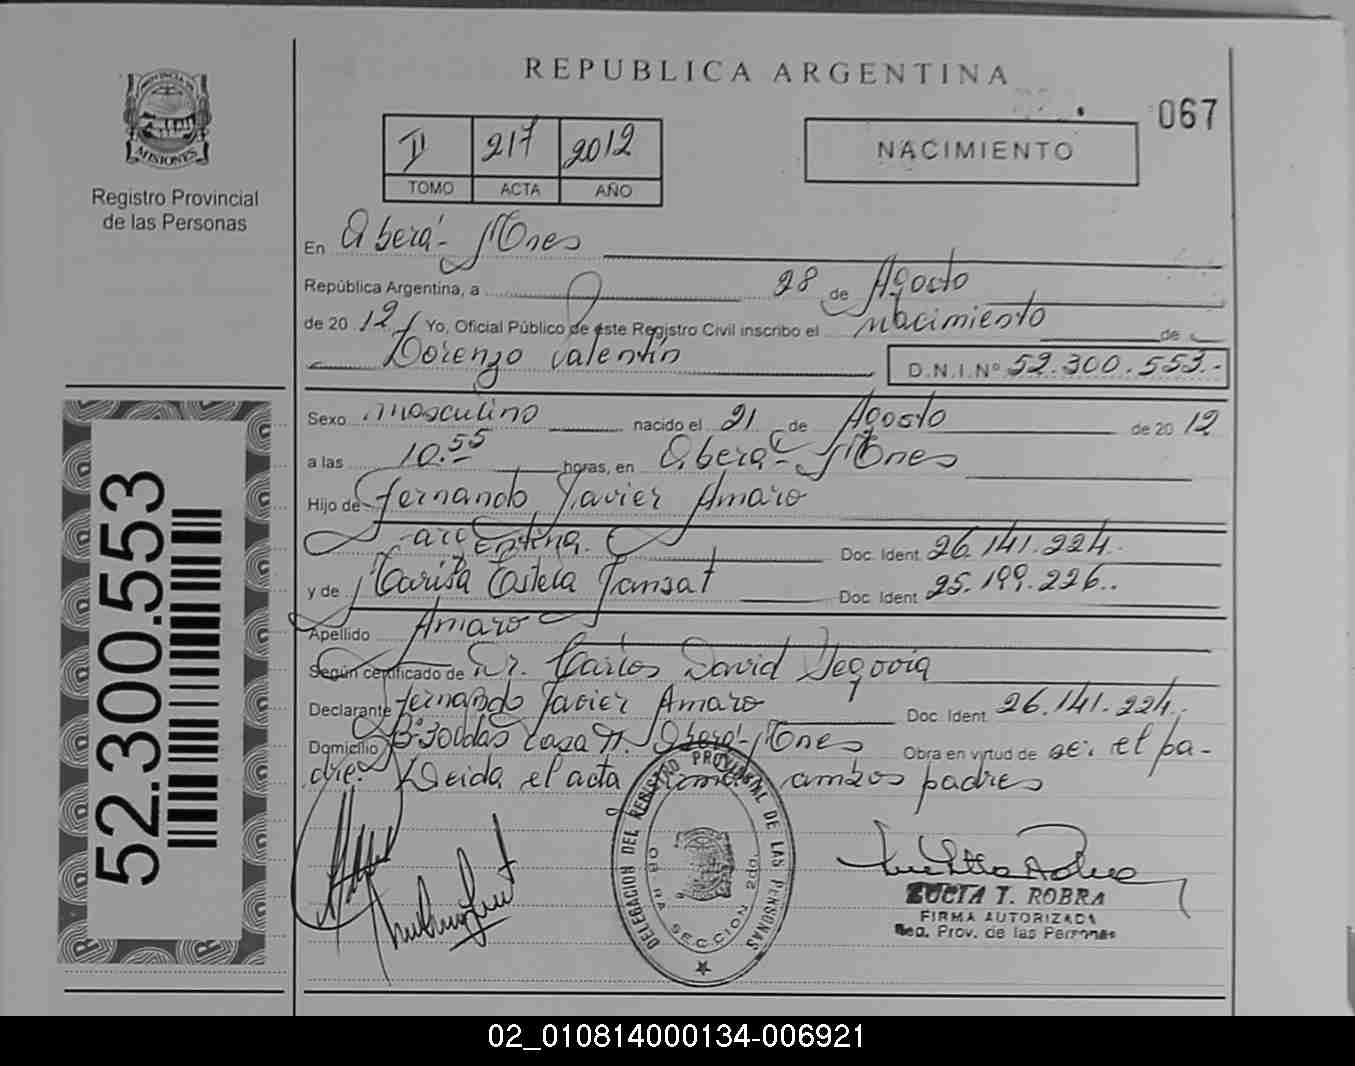 REPUBLICA ARGENTINA
067
PROVINCIA DE
MISIONES
Registro Provincial
de las Personas
II 217 2012
TOMO ACTA AÑO
NACIMIENTO
En Oberá - Mnes
República Argentina, a 28 de Agosto
de 20 12 Yo, Oficial Público de este Registro Civil inscribo el Nacimiento de
Lorenzo Valentín
D.N.I.Nº 52.300.553.-
Sexo masculino nacido el 21 de Agosto de 20 12
a las 10.55 horas, en Oberá - Mnes
Hijo de Fernando Javier Amaro
argentina. Doc. Ident. 26.141.224.
y de Tansat Doc. Ident. 25.199.226..
Apellido Amaro
Según certificado de Dr. Carlos David Segovia
Declarante Fernando Javier Amaro Doc. Ident. 26.141.224.
Domicilio Casa Oberá - Mnes Obra en virtud de ser el pa-
dre. Leida el acta ambos padres
52.300.553
DELEGACION DEL REGISTRO PROVINCIAL DE LAS PERSONAS
SECCION 2da.
LUCIA T. ROBRA
FIRMA AUTORIZADA
Reg. Prov. de las Personas
02_010814000134-006921